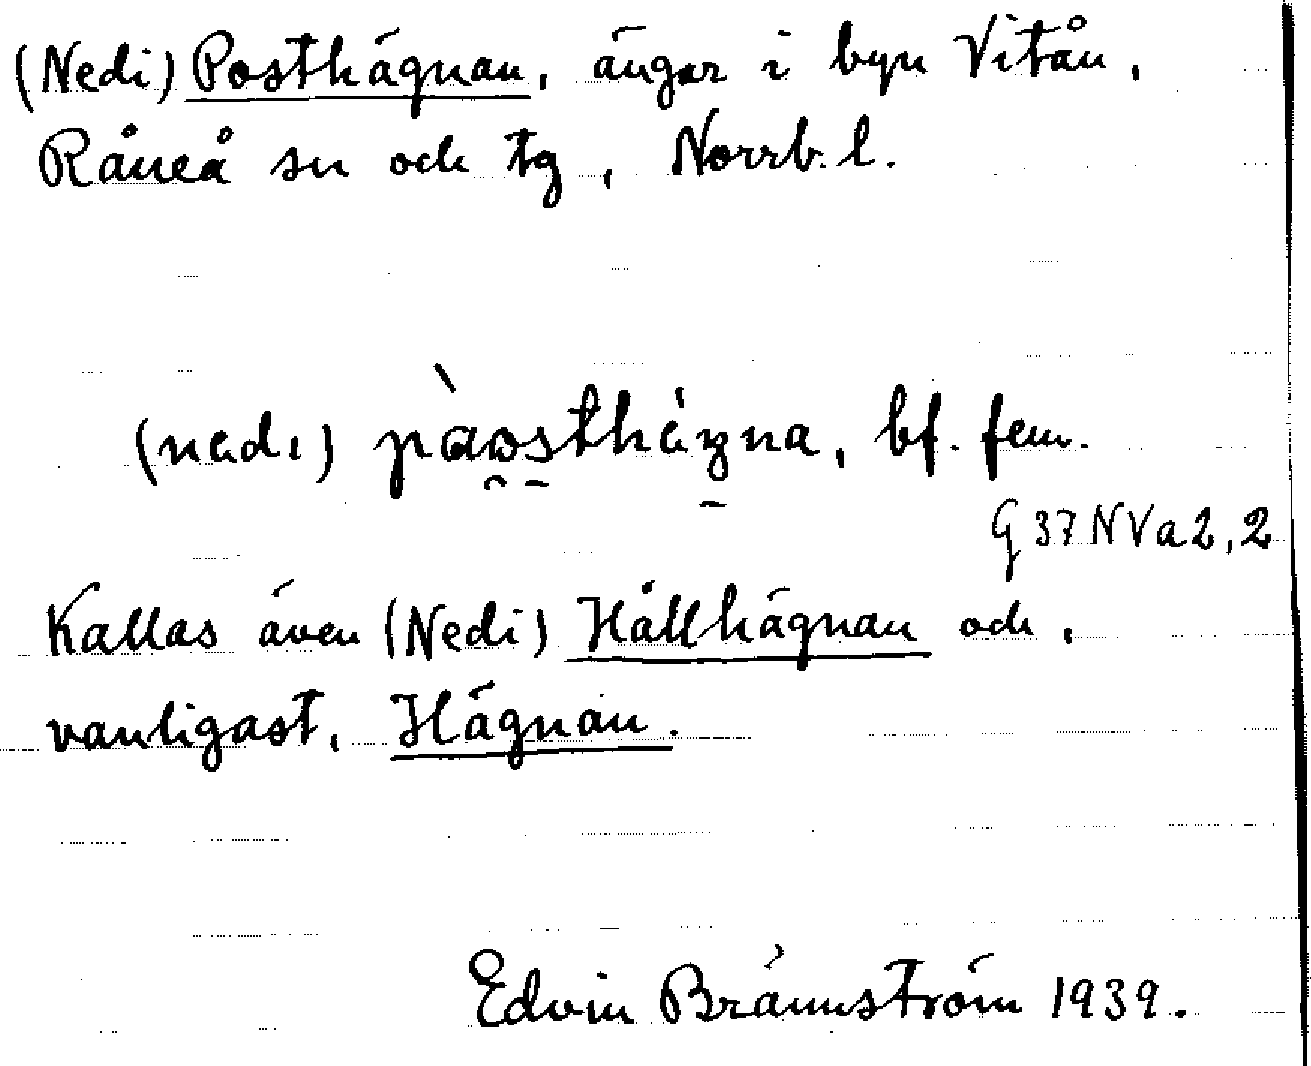 (Nedi) Posthägnan, ängar i byn Vitån,
Råneå sn och tg, Norrb. l.
(nedı) pàɷsthä̀γna, bf. fem.
G 37 NVa2,2
Kallas även (Nedi) Hållhägnan och,
vanligast, Hägnan.
Edvin Brännström 1939.